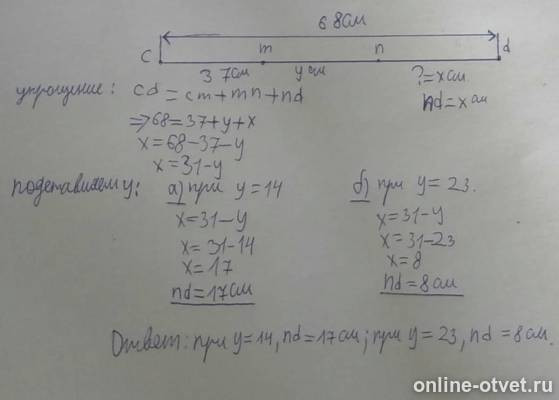 68см
c m n d
37см y см ?=xсм
упрощение: cd=cm+mn+nd nd=xсм
=>68=37+y+x
x=68-37-y
x=31-y
подставляем y: а) при y=14 б) при y=23.
x=31-y x=31-y
x=31-14 x=31-23
x=17 x=8
nd=17см nd=8см
Ответ: при y=14, nd=17см; при y=23, nd=8см.
online-otvet.ru